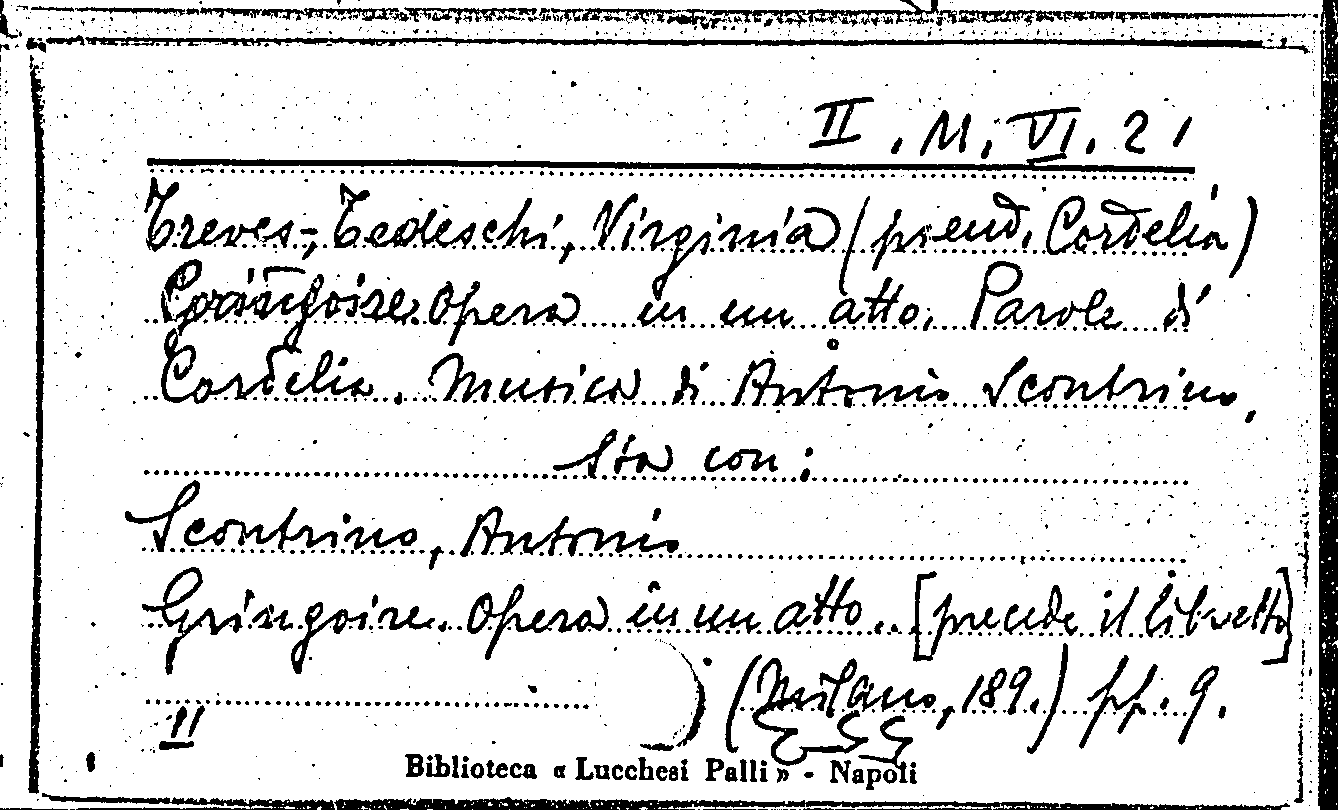 II. M. VI. 21
Treves-Tedeschi, Virginia (pseud. Cordelia)
Gringoire. Opera in un atto. Parole di
Cordelia. Musica di Antonio Scontrino.
Sta con:
Scontrino, Antonio
Gringoire. Opera in un atto.. [precede il libretto]
(Milano, 189.) pp. 9.
II
Biblioteca « Lucchesi Palli » - Napoli